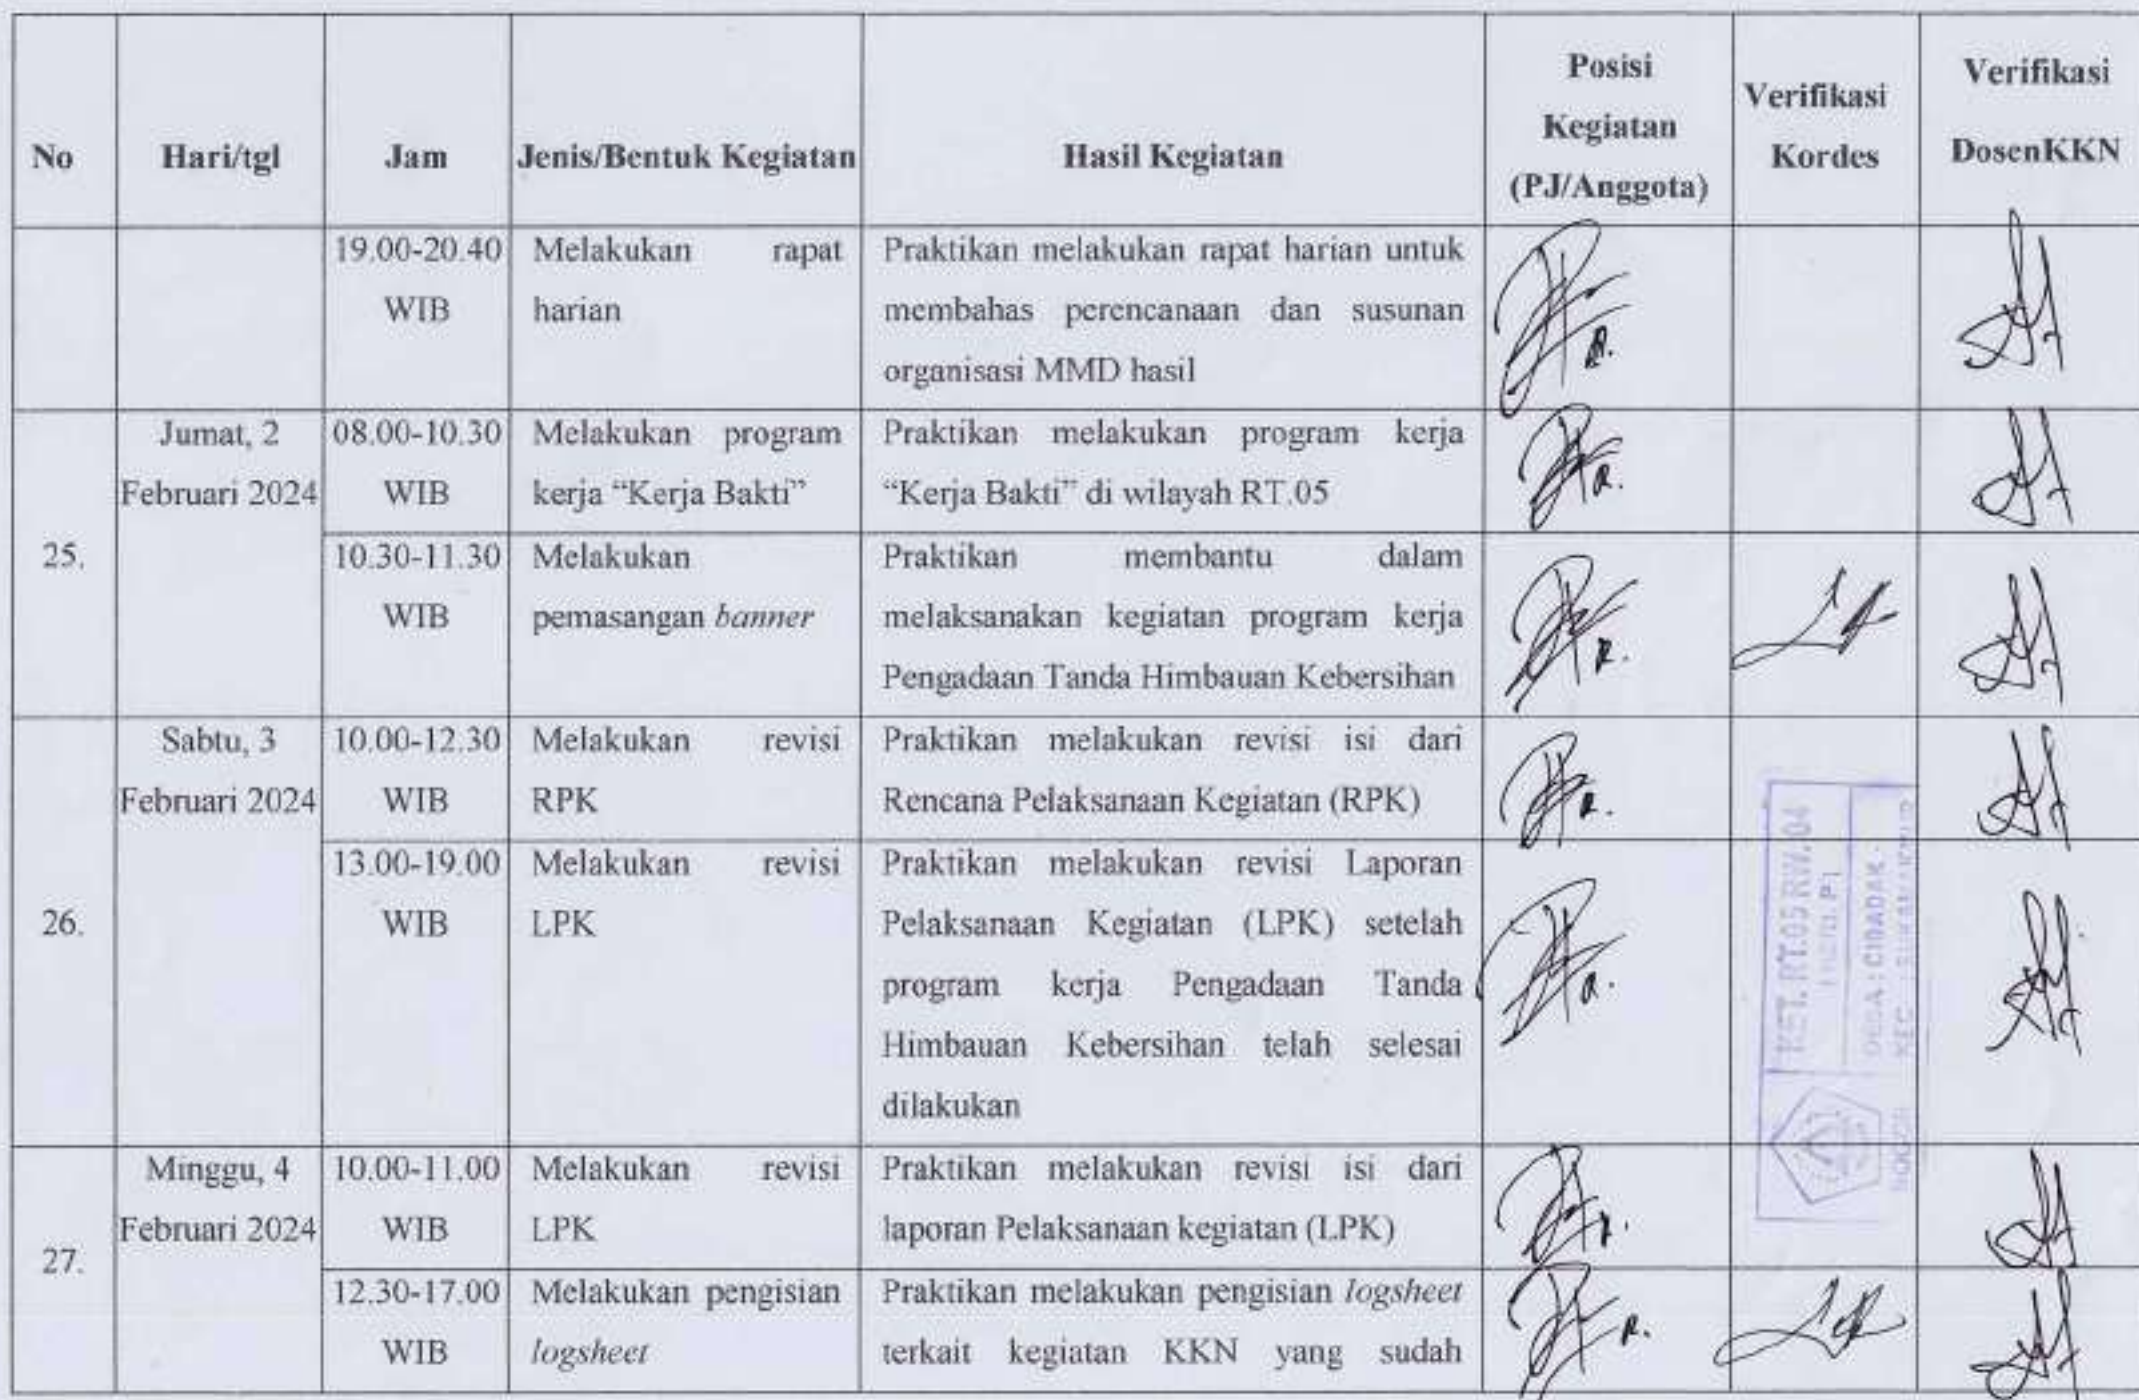 No
Hari/tgl
Jam
Jenis/Bentuk Kegiatan
Hasil Kegiatan
Posisi
Kegiatan
(PJ/Anggota)
Verifikasi
Kordes
Verifikasi
DosenKKN
19.00-20.40
WIB
Melakukan rapat
harian
Praktikan melakukan rapat harian untuk
membahas perencanaan dan susunan
organisasi MMD hasil
25.
Jumat, 2
Februari 2024
08.00-10.30
WIB
Melakukan program
kerja “Kerja Bakti”
Praktikan melakukan program kerja
“Kerja Bakti” di wilayah RT.05
10.30-11.30
WIB
Melakukan
pemasangan banner
Praktikan membantu dalam
melaksanakan kegiatan program kerja
Pengadaan Tanda Himbauan Kebersihan
26.
Sabtu, 3
Februari 2024
10.00-12.30
WIB
Melakukan revisi
RPK
Praktikan melakukan revisi isi dari
Rencana Pelaksanaan Kegiatan (RPK)
13.00-19.00
WIB
Melakukan revisi
LPK
Praktikan melakukan revisi Laporan
Pelaksanaan Kegiatan (LPK) setelah
program kerja Pengadaan Tanda
Himbauan Kebersihan telah selesai
dilakukan
KET. RT.05 RW.04
DESA : CIDADAK
KEC
27.
Minggu, 4
Februari 2024
10.00-11.00
WIB
Melakukan revisi
LPK
Praktikan melakukan revisi isi dari
laporan Pelaksanaan kegiatan (LPK)
12.30-17.00
WIB
Melakukan pengisian
logsheet
Praktikan melakukan pengisian logsheet
terkait kegiatan KKN yang sudah